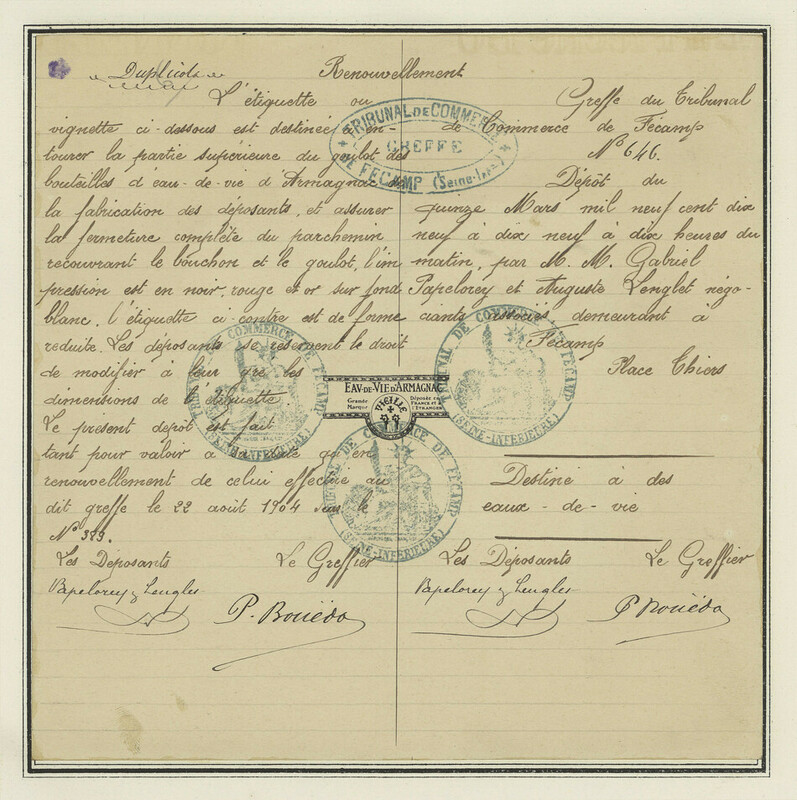 Duplicata
Renouvellement
L'étiquette ou
vignette ci-dessous est destinée à en-
tourer la partie supérieure du goulot des
bouteilles d'eau-de-vie d'Armagnac de
la fabrication des déposants, et assurer
la fermeture complète du parchemin
recouvrant le bouchon et le goulot, l'im
pression est en noir, rouge et or sur fond
blanc. l'étiquette ci-contre est de forme
réduite. Les déposants se réservent le droit
de modifier à leur gré les
dimensions de l'étiquette.
Le présent depôt est fait
tant pour valoir à qu'en
renouvellement de celui effectué au
dit greffe le 22 août 1904 sous le
N° 323.
Les Déposants
Le Greffier
Papelorey & Lenglet
P. Bouëda
Greffe du Tribunal
de Commerce de Fécamp
N° 646.
Dépôt du
quinze Mars mil neuf cent dix
neuf à dix neuf à dix heures du
matin, par M. M. Gabriel
Papelorey et Auguste Lenglet négo-
ciants associés, demeurant à
Fécamp
Place Thiers
Destiné à des
eaux-de-vie
Les Déposants
Le Greffier
Papelorey & Lenglet
P. Bouëda
TRIBUNAL DE COMMERCE
GREFFE
DE FÉCAMP (Seine-Infre)
EAU-DE-VIE D'ARMAGNAC
Grande
Marque
VIEILLE
Déposée en
FRANCE et à
L'ÉTRANGER
TRIBUNAL DE COMMERCE DE FÉCAMP
(SEINE-INFÉRIEURE)
TRIBUNAL DE COMMERCE DE FÉCAMP
(SEINE-INFÉRIEURE)
TRIBUNAL DE COMMERCE DE FÉCAMP
(SEINE-INFÉRIEURE)